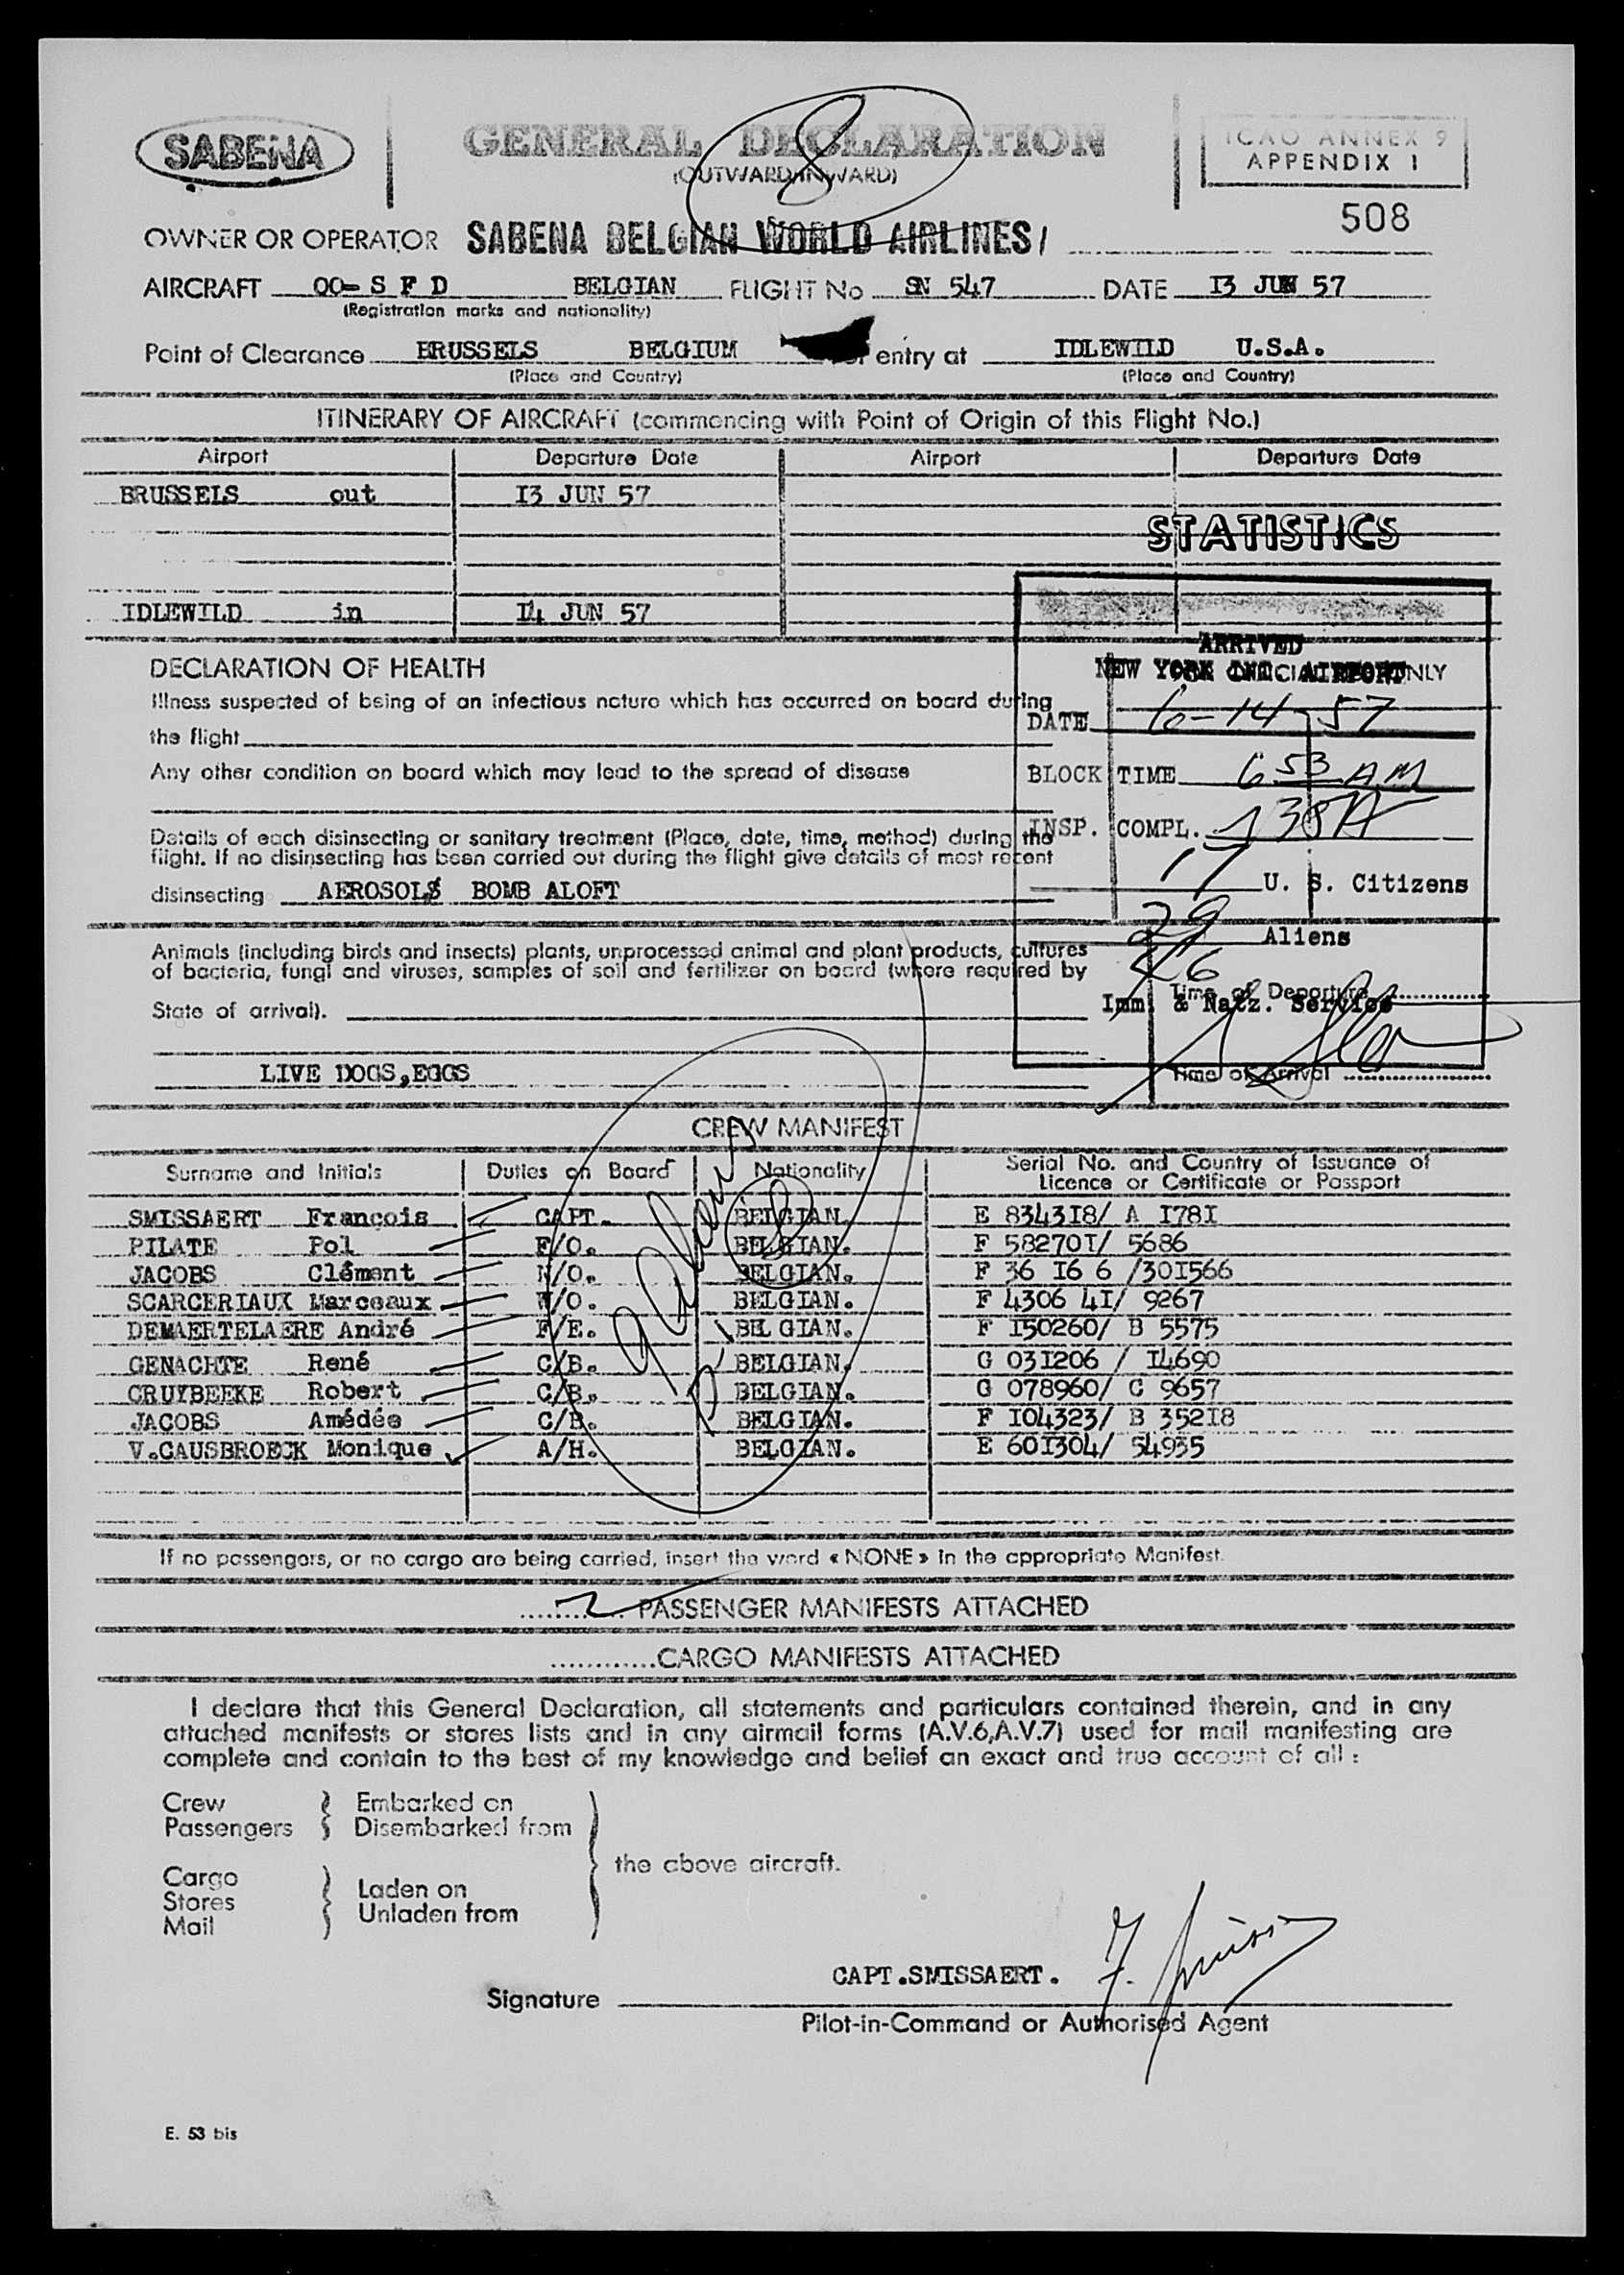 SABENA
GENERAL DECLARATION
(OUTWARD/INWARD)
8
ICAO ANNEX 9
APPENDIX 1
508
OWNER OR OPERATOR SABENA BELGIAN WORLD AIRLINES/
AIRCRAFT OO- S F D BELGIAN FLIGHT No SN 547 DATE I3 JUN 57
(Registration marks and nationality)
Point of Clearance BRUSSELS BELGIUM entry at IDLEWILD U.S.A.
(Place and Country) (Place and Country)
ITINERARY OF AIRCRAFT (commencing with Point of Origin of this Flight No.)
Airport Departure Date Airport Departure Date
BRUSSELS out I3 JUN 57
STATISTICS
IDLEWILD in I4 JUN 57
ARRIVED
NEW YORK INT. AIRPORT
DATE 6-14-57
BLOCK TIME 6 53 AM
INSP. COMPL. 738A
17 U. S. Citizens
29 Aliens
46
Imm. & Natz. Service
Time of Departure
Time of Arrival
DECLARATION OF HEALTH
Illness suspected of being of an infectious nature which has occurred on board during
the flight
Any other condition on board which may lead to the spread of disease
Details of each disinsecting or sanitary treatment (Place, date, time, method) during the
flight. If no disinsecting has been carried out during the flight give details of most recent
disinsecting AEROSOLS BOMB ALOFT
Animals (including birds and insects) plants, unprocessed animal and plant products, cultures
of bacteria, fungi and viruses, samples of soil and fertilizer on board (where required by
State of arrival).
LIVE DOGS,EGGS
CREW MANIFEST
Surname and Initials Duties on Board Nationality Serial No. and Country of Issuance of
Licence or Certificate or Passport
SMISSAERT François CAPT. BELGIAN. E 8343I8/ A I78I
PILATE Pol F/O. BELGIAN. F 58270I/ 5686
JACOBS Clément N/O. BELGIAN. F 36 I6 6 /30I566
SCARCERIAUX Marceaux W/O. BELGIAN. F 4306 4I/ 9267
DEMAERTELAERE André F/E. BEL GIAN. F I50260/ B 5575
GENACHTE René C/B. BELGIAN. G 03I206 / I4690
CRUYBEEKE Robert C/B. BELGIAN. G 078960/ C 9657
JACOBS Amédée C/B. BELGIAN. F I04323/ B 352I8
V.CAUSBROECK Monique A/H. BELGIAN. E 60I304/ 54935
If no passengers, or no cargo are being carried, insert the word « NONE » in the appropriate Manifest.
2 PASSENGER MANIFESTS ATTACHED
............CARGO MANIFESTS ATTACHED
I declare that this General Declaration, all statements and particulars contained therein, and in any
attached manifests or stores lists and in any airmail forms (A.V.6,A.V.7) used for mail manifesting are
complete and contain to the best of my knowledge and belief an exact and true account of all :
Crew Embarked on
Passengers Disembarked from
the above aircraft.
Cargo
Stores Laden on
Mail Unladen from
CAPT.SMISSAERT.
Signature
Pilot-in-Command or Authorised Agent
E. 53 bis